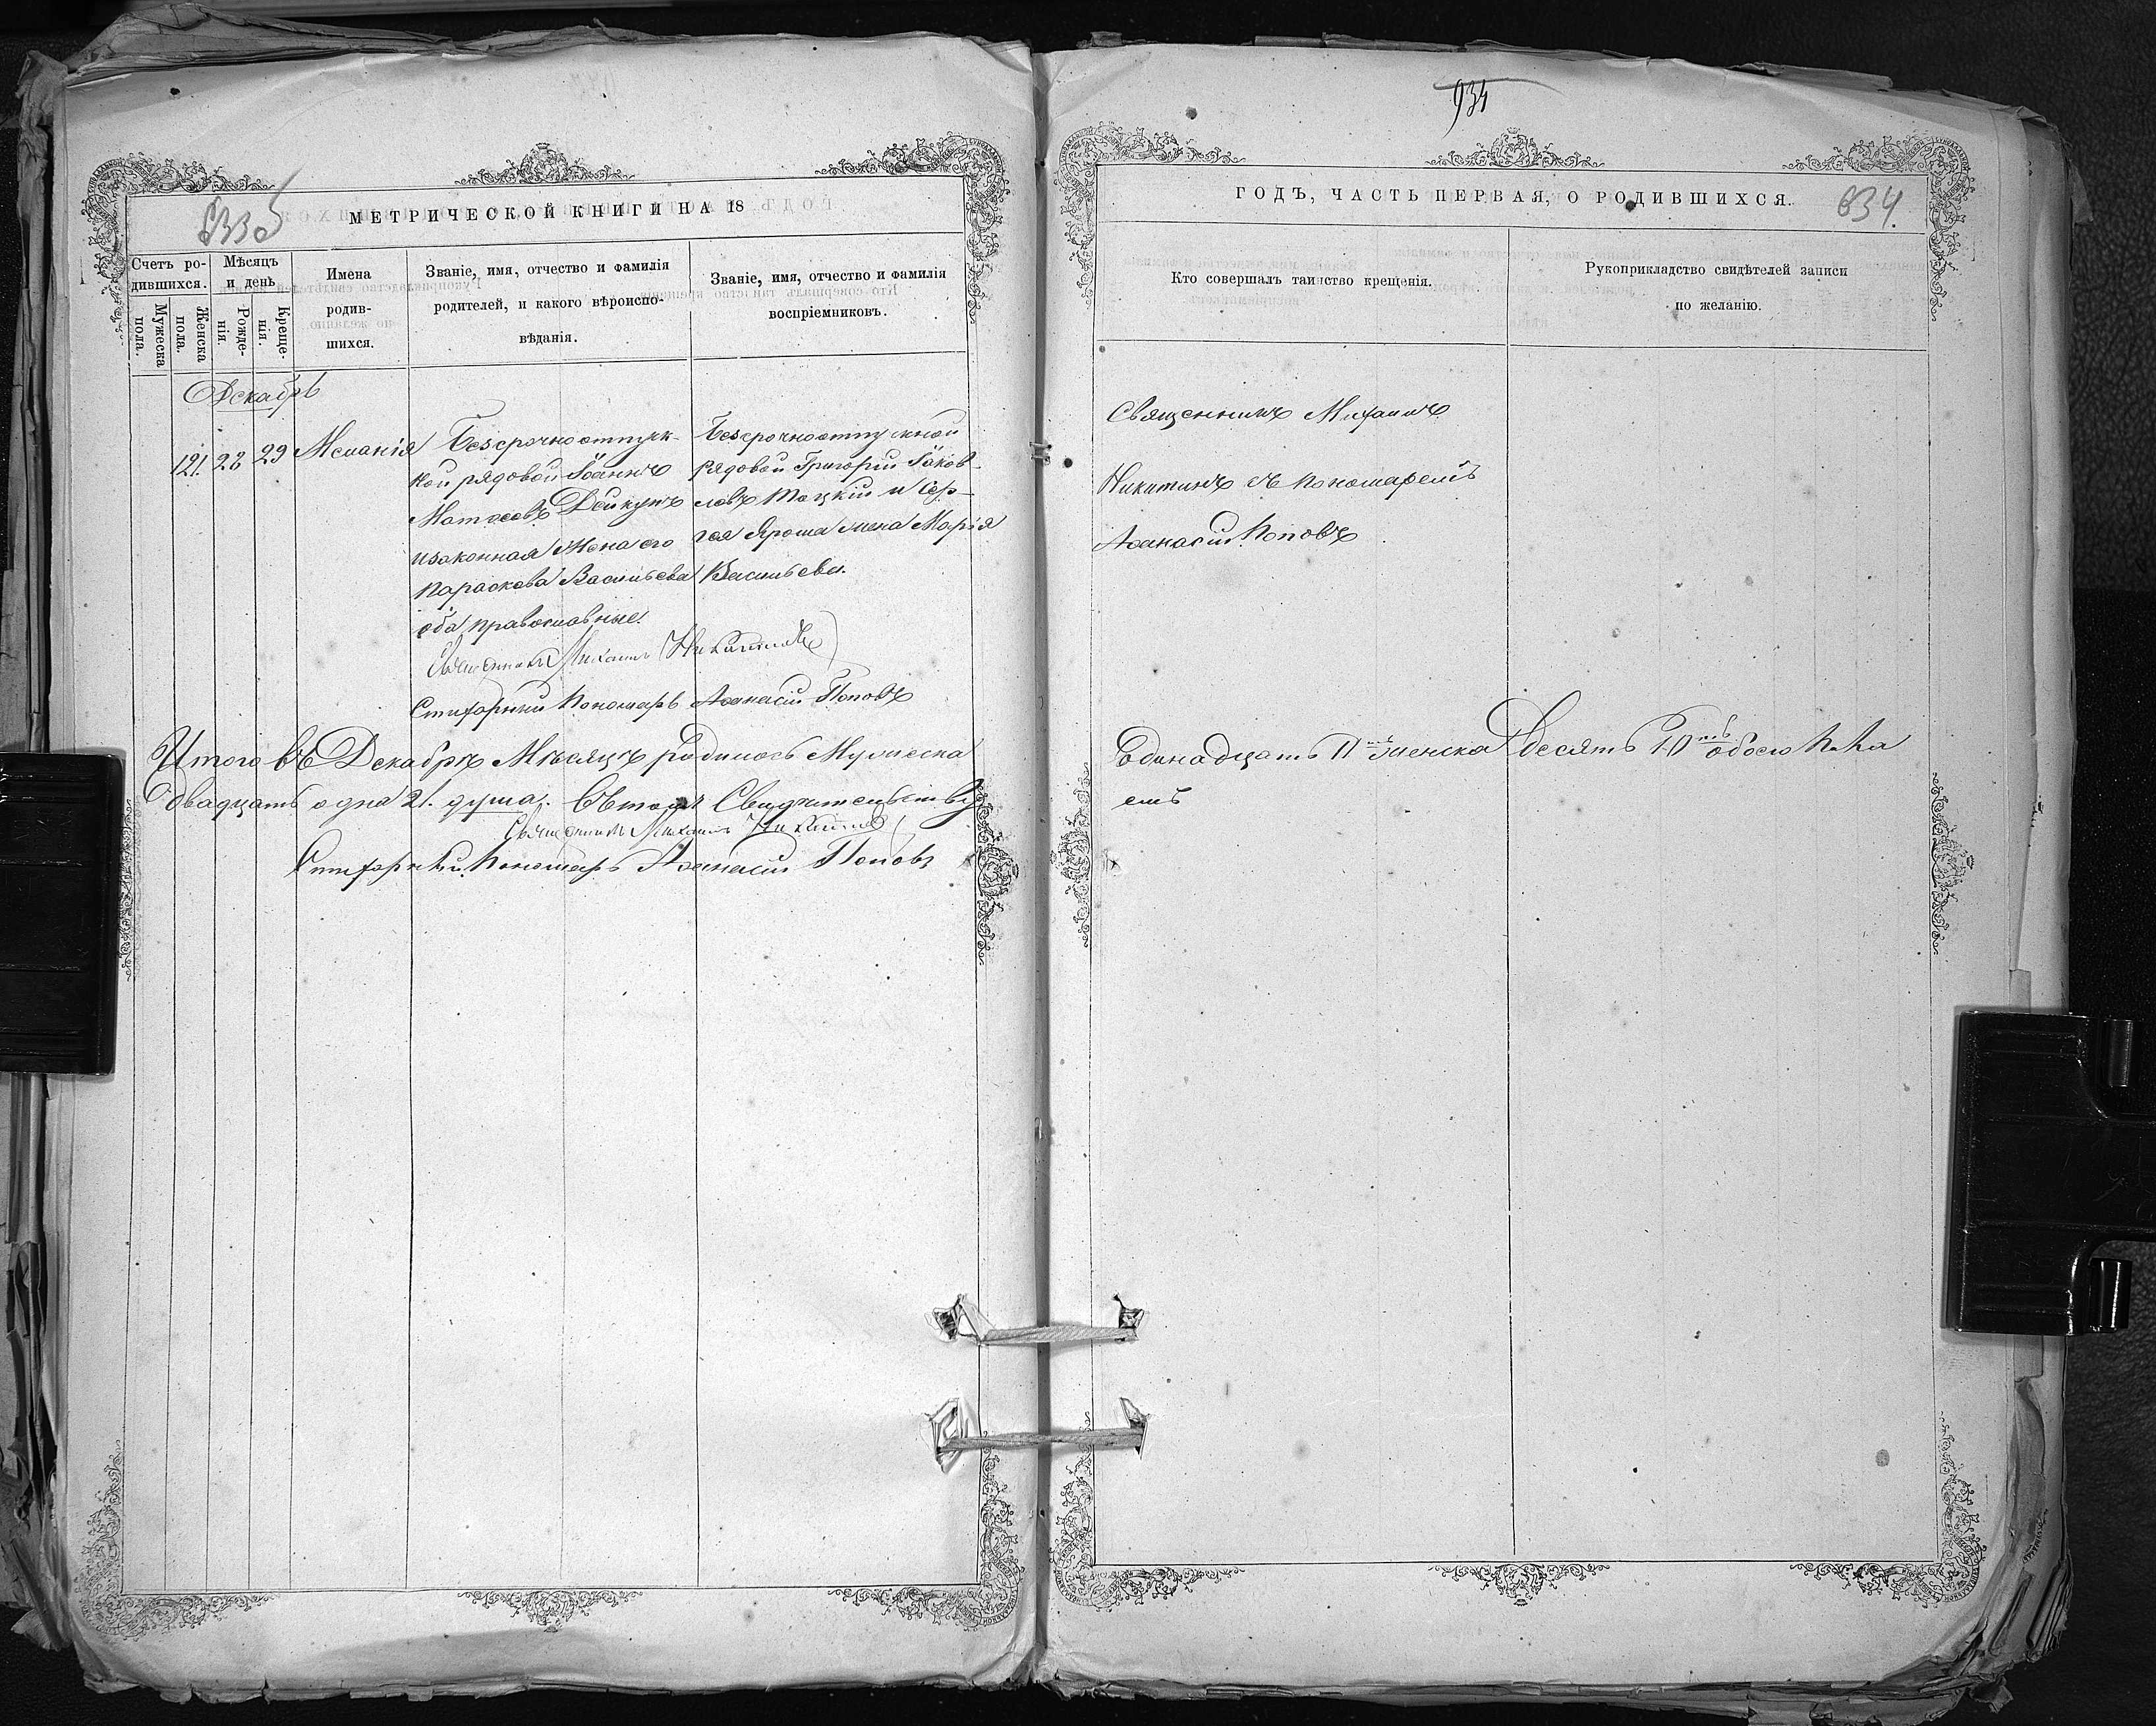 833 об
МЕТРИЧЕСКОЙ КНИГИ НА 18
Счетъ ро-
дившихся.
Мужеска
пола.
Женска
пола.
Мѣсяцъ
и день
Рожде-
нія.
Креще-
нія.
Имена
родив-
шихся.
Званіе, имя, отчество и фамилія
родителей, и какого вѣроиспо-
вѣданія.
Званіе, имя, отчество и фамилія
воспріемниковъ.
Декабрь
121. 28 29 Меланія
Безсрочноотпуск-
ной рядовой Іоаннъ
Матѳеевъ Дейкунъ
изаконная Жена его
Параскева Васильева
оба православные.
Безсрочноотпускной
рядовой Григорій Іаков-
левъ Тоцкій и Сер-
гея Яроша жена Марія
Васильева.
Священникъ Михаилъ Никитинъ
Стихарный Пономарь Аѳанасій Поповъ
Итого въ Декабрѣ Мѣсяцѣ родилось Мужеска
двадцать одна 21. душа. Въ томъ Свидѣтельствуемъ
Священникъ Михаилъ Никитинъ
Стихарный Пономарь Аѳанасій Поповъ
934
ГОДЪ, ЧАСТЬ ПЕРВАЯ, О РОДИВШИХСЯ.
834.
Кто совершалъ таинство крещенія.
Рукоприкладство свидѣтелей записи
по желанію.
Священникъ Михаилъ
Никитинъ съ пономаремъ
Аѳанасій Поповъ
Одинадцать 11ть женска Десять 10ть обоего пола
емъ